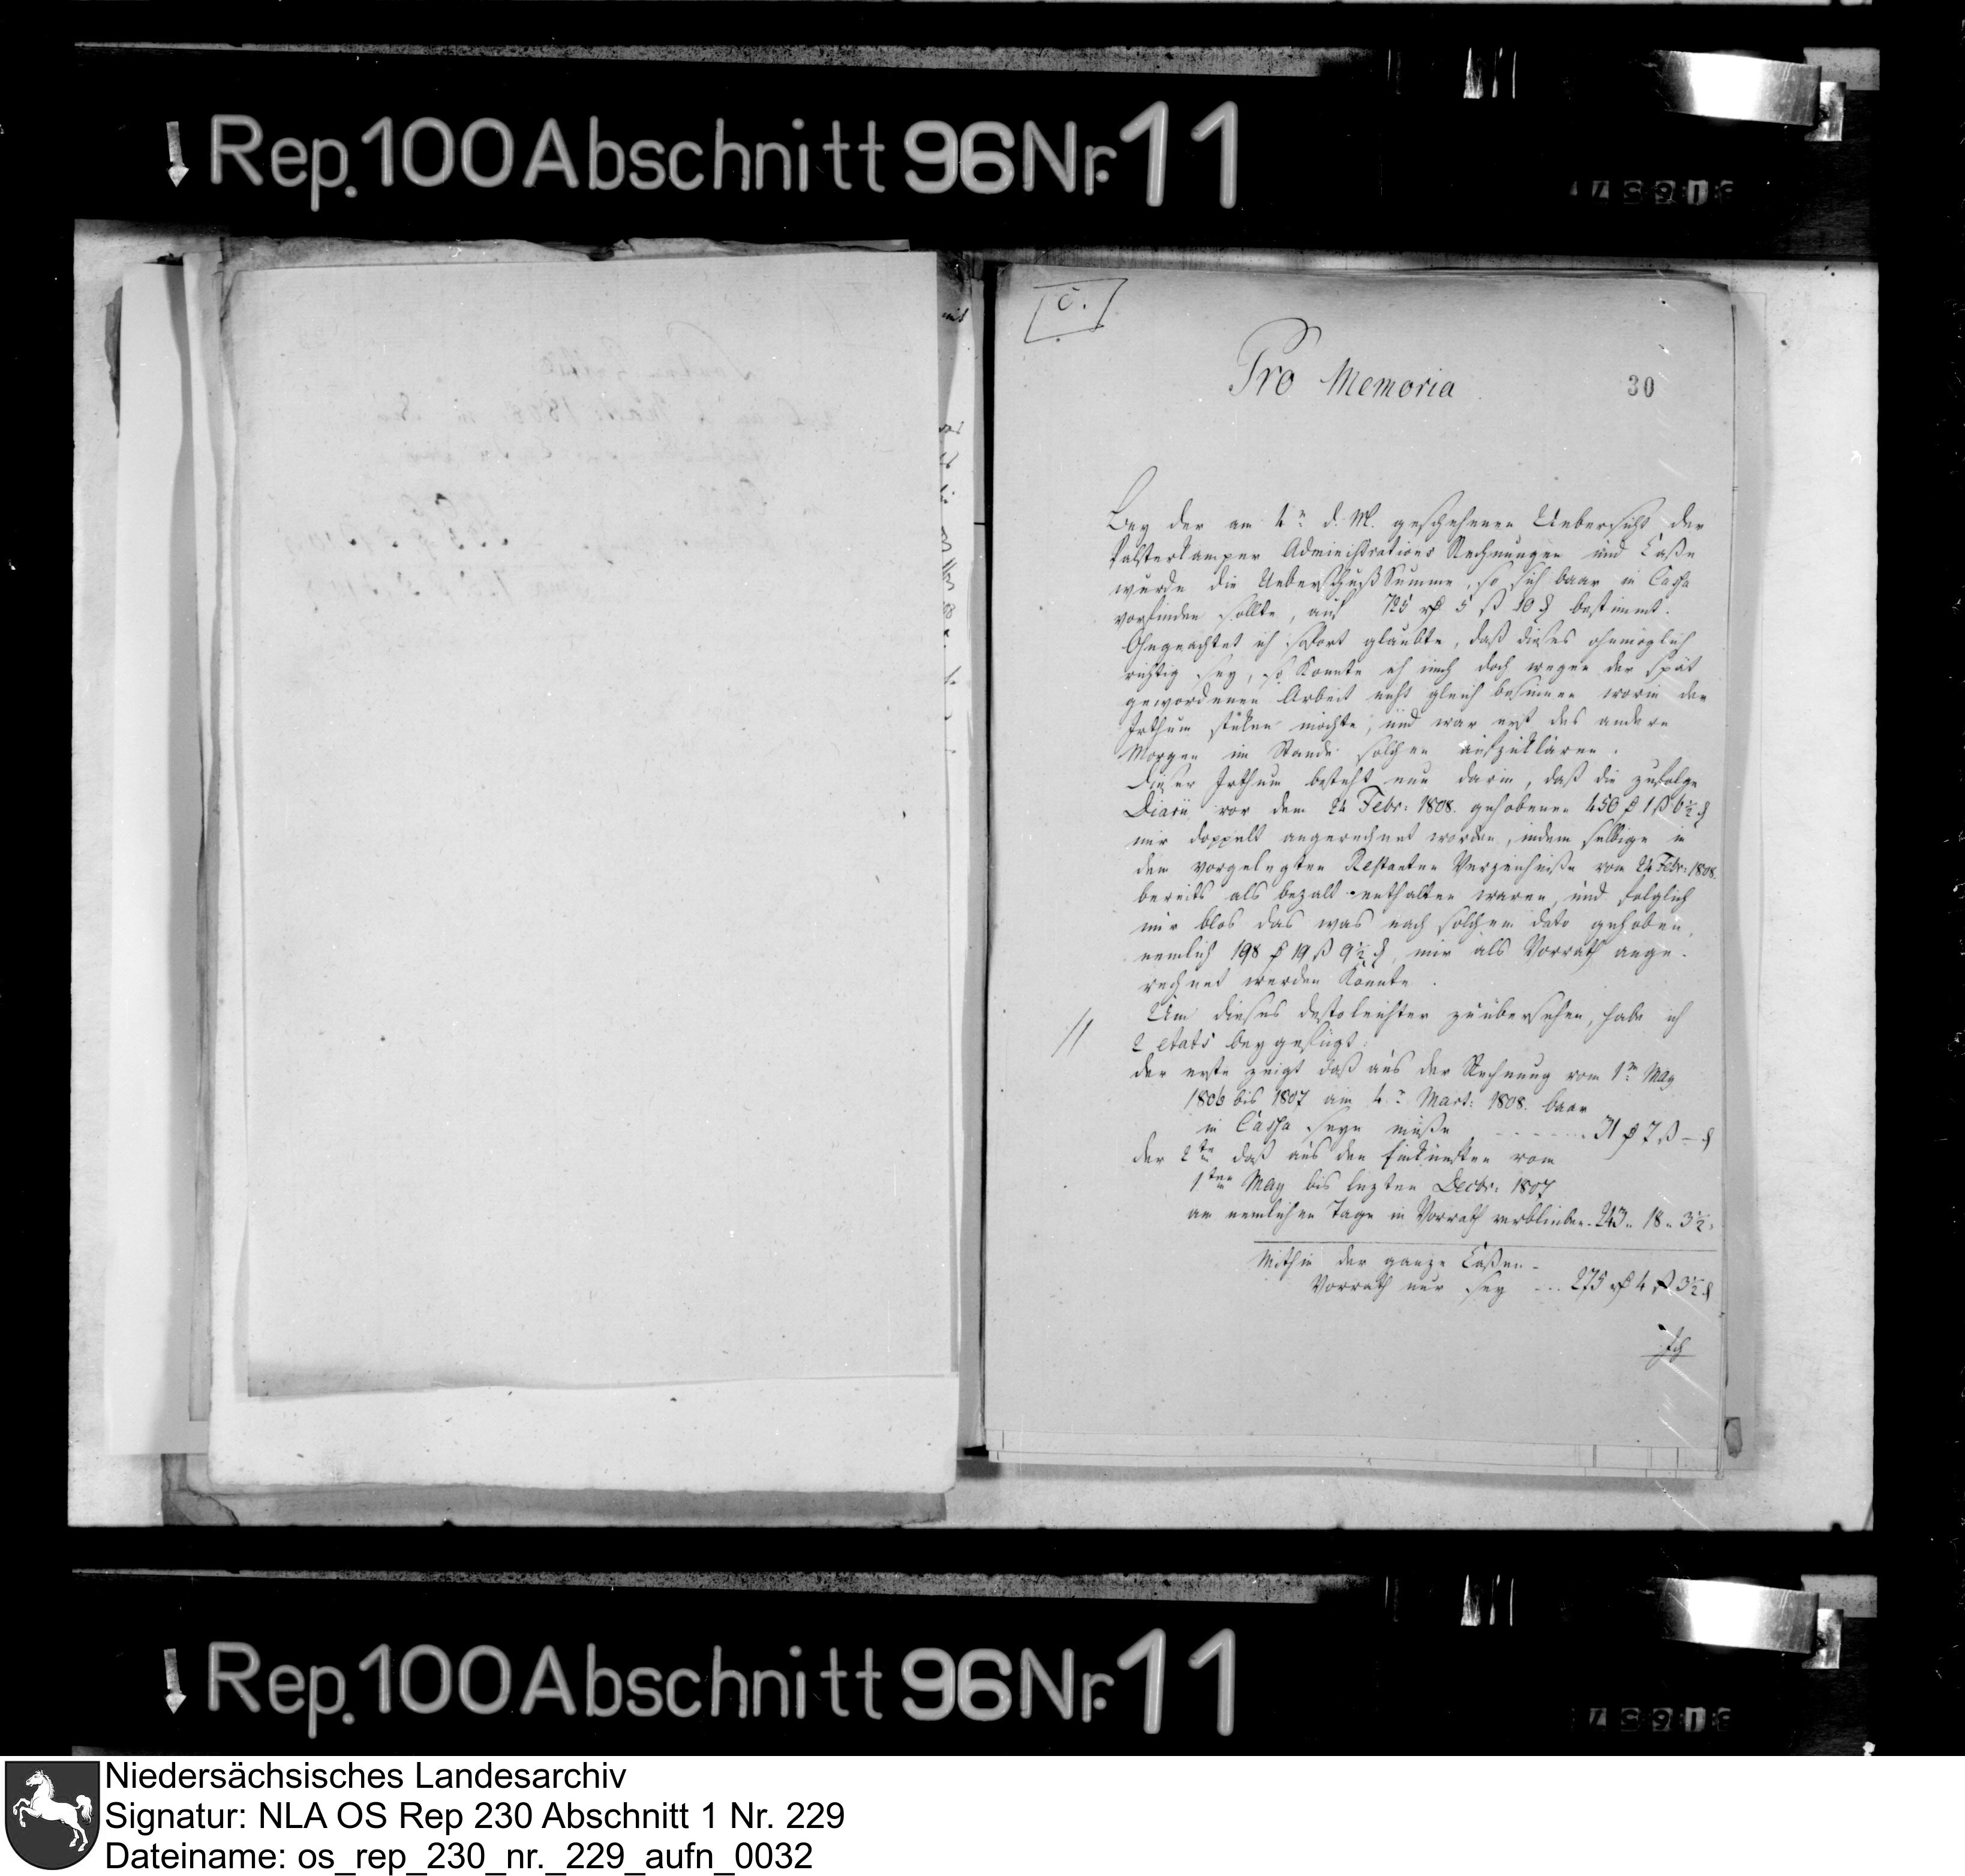 Rep. 100 Abschnitt 96 Nr. 11
C.
Pro Memoria
30
Bey der am 4n d. M. geschehenen Uebersicht der
Palsterkamper Administrations Rechnungen und Casse
wurde die Ueberschuß Summe, so sich baar in Cassa
vorfinden sollte, auf 725 rt 5 ß 10 d bestimmt.
Ohngeachtet ich sofort glaubte, daß dieses ohnmöglich
richtig sey, so konnte ich mich doch wegen der spät
gewordenen Arbeit nicht gleich besinnen worin der
Irthum stecken möchte, und war erst des andern
Morgen im Stande solchen aufzuklären.
Dieser Irthum besteht nun darin, daß die zufolge
Diarii vor dem 24 Febr: 1808. gehobenen 450 rt 1 ß 6½ d
mir doppelt angerechnet worden, indem selbige in
dem vorgelegten Restanten Verzeichniße vom 24 Febr: 1808.
bereits als bezalt enthalten waren, und folglich
mir blos das was nach solchem dato gehoben,
nemlich 198 rt 19 ß 9½ d, mir als Vorrath ange-
rechnet werden konnte.
Um dieses destoleichter zu übersehen, habe ich
//
2 etats beygefügt:
der erste zeigt daß aus der Rechnung vom 1n May
1806 bis 1807 am 4n Mart: 1808. baar
in Cassa seyn müße - - - - 31 rt 7 ß — d
der 2te daß aus den Einkünften vom
1ten May bis lezten Decbr: 1807
am nemlichen Tage in Vorrath verblieben - 243 „ 18 „ 3½ „
Mithin der ganze Caßen-
Vorrath nur sey --- 275 rt 4 ß 3½ d
Ich
Rep. 100 Abschnitt 96 Nr. 11
Niedersächsisches Landesarchiv
Signatur: NLA OS Rep 230 Abschnitt 1 Nr. 229
Dateiname: os_rep_230_nr._229_aufn_0032